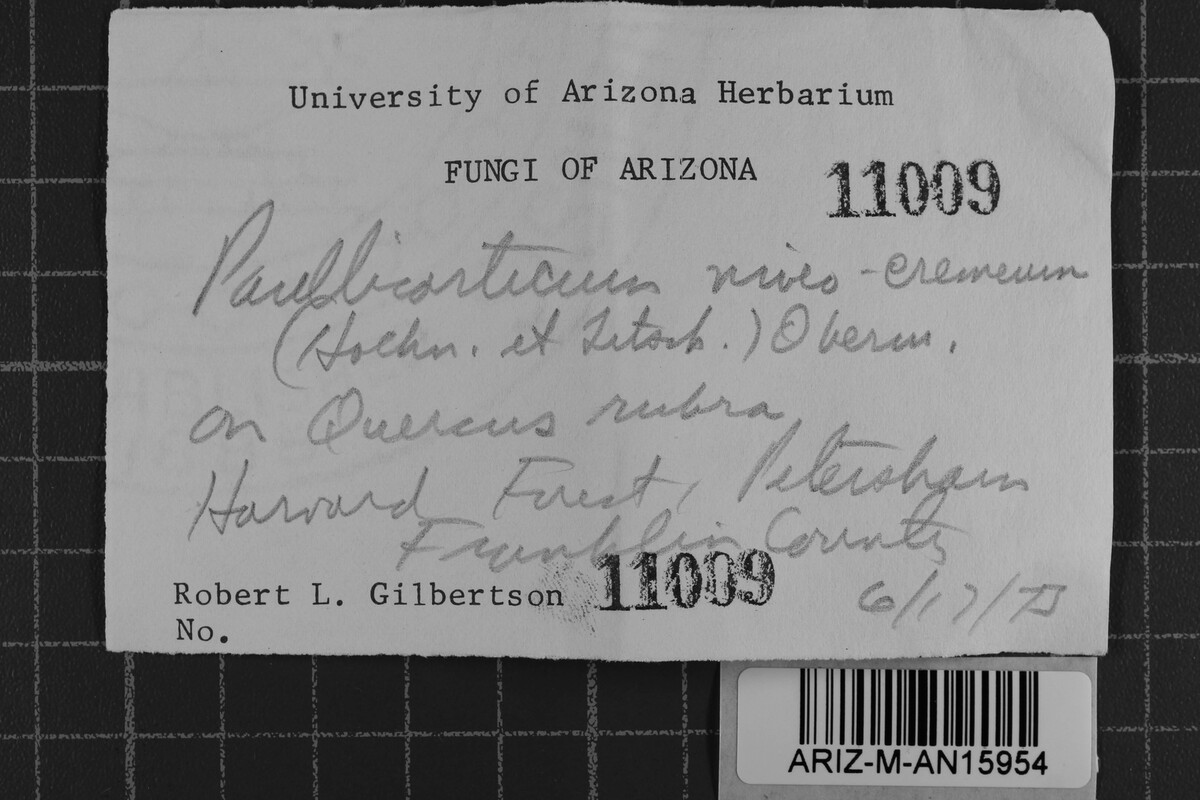 University of Arizona Herbarium
FUNGI OF ARIZONA 11009
Paullicorticium niveo-cremeum
(Hoehn. et Litsch.) Oberw.
on Quercus rubra
Harvard Forest, Petersham
Franklin County
Robert L. Gilbertson 11009 6/17/73
No.
ARIZ-M-AN15954